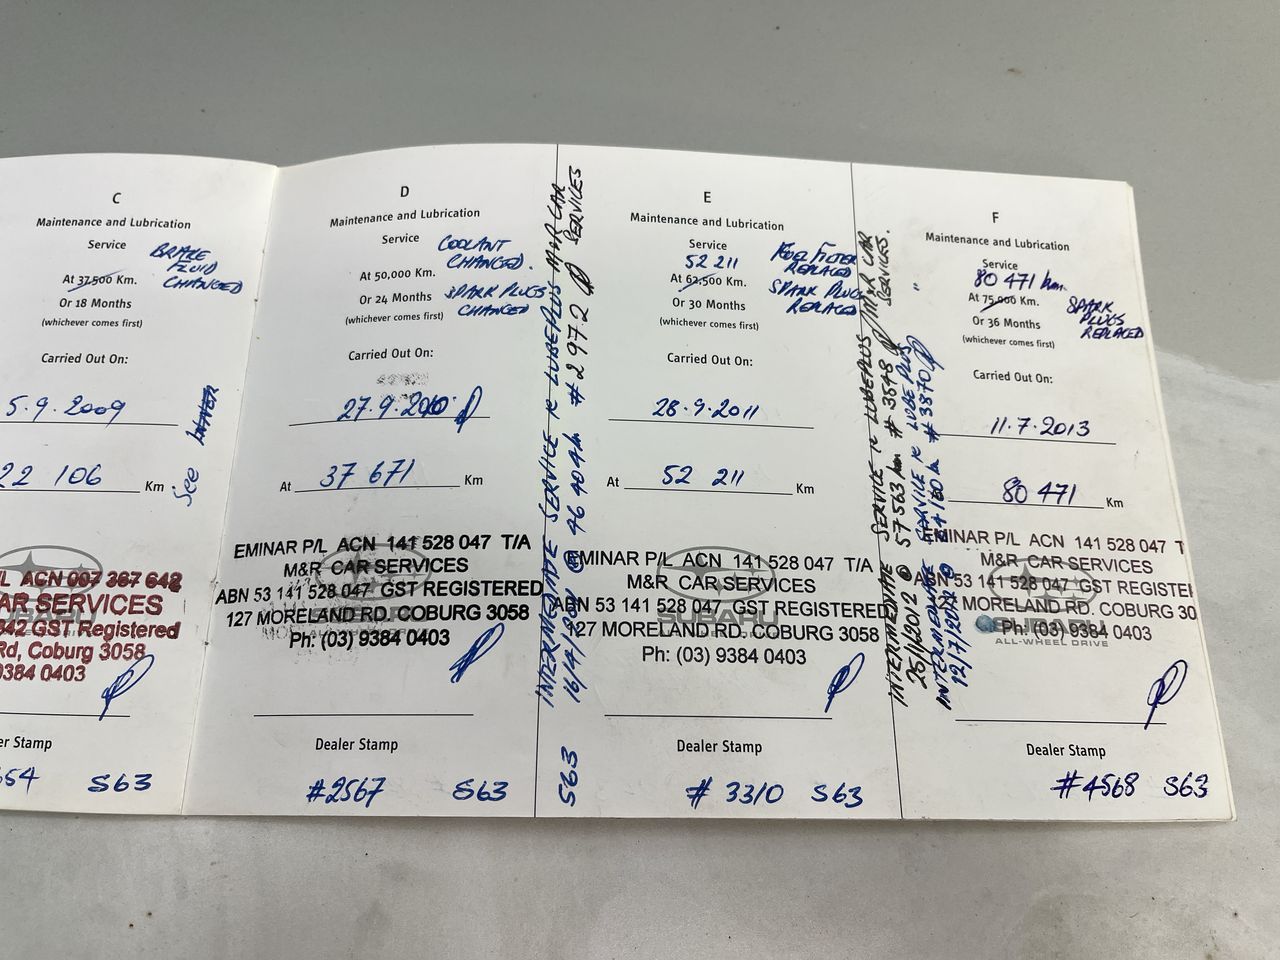 C
Maintenance and Lubrication
Service
BRAKE
FLUID
CHANGED
At 37,500 Km.
Or 18 Months
(whichever comes first)
Carried Out On:
5.9.2009
22 106 Km
See
L ACN 007 367 642
AR SERVICES
042 GST Registered
Rd, Coburg 3058
9384 0403
er Stamp
54 S63
D
Maintenance and Lubrication
Service
COOLANT
CHANGED.
At 50,000 Km.
Or 24 Months
SPARK PLUGS
CHANGED
(whichever comes first)
Carried Out On:
27.9.2010
At 37 671 Km
EMINAR P/L ACN 141 528 047 T/A
M&R CAR SERVICES
ABN 53 141 528 047 GST REGISTERED
127 MORELAND RD. COBURG 3058
Ph: (03) 9384 0403
Dealer Stamp
#2567 S63
INTERMEDIATE SERVICE IE LUBEPLUS M&R CAR
SERVICES
16/4/2011 @ 46 404 km #2972
S63
E
Maintenance and Lubrication
Service
52 211
FUEL FILTER
REPLACED
At 62,500 Km.
SPARK PLUGS
REPLACED
Or 30 Months
(whichever comes first)
Carried Out On:
28.9.2011
At 52 211 Km
EMINAR P/L ACN 141 528 047 T/A
M&R CAR SERVICES
ABN 53 141 528 047 GST REGISTERED
127 MORELAND RD. COBURG 3058
SUBARU
Ph: (03) 9384 0403
Dealer Stamp
# 3310 S63
INTERMEDIATE SERVICE IE LUBEPLUS / M&R CAR
SERVICES.
25/1/2012 @ 57563 km #3548
INTERMEDIATE SERVICE IE LUBE PLUS "
#3870
F
Maintenance and Lubrication
Service
80 471 km
At 75,000 Km.
SPARK
PLUGS
REPLACED
Or 36 Months
(whichever comes first)
Carried Out On:
11.7.2013
80 471 Km
EMINAR P/L ACN 141 528 047 T
M&R CAR SERVICES
ABN 53 141 528 047 GST REGISTE
MORELAND RD. COBURG 30
SUBARU
Ph: (03) 9384 0403
ALL-WHEEL DRIVE
Dealer Stamp
#4568 S63